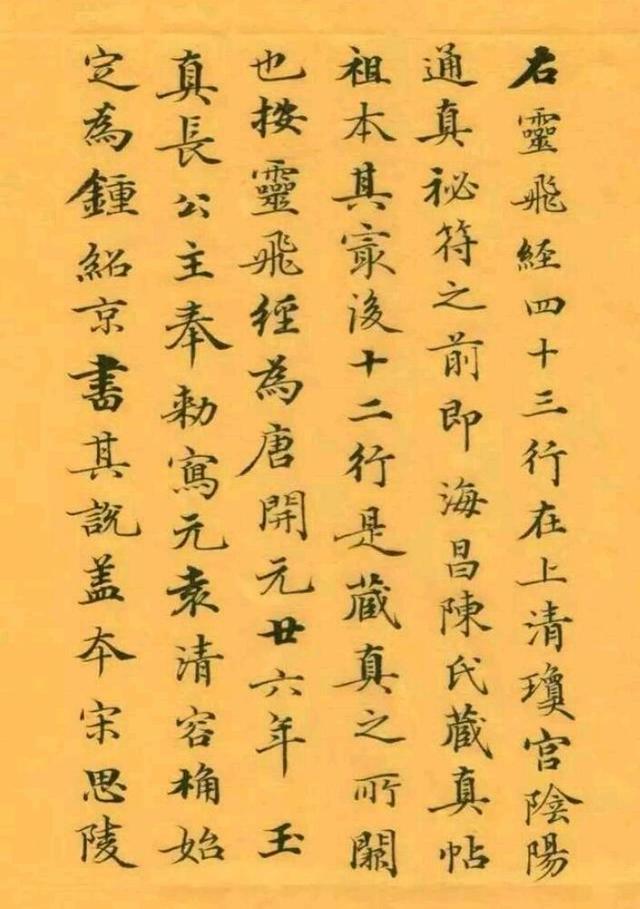 右靈飛經四十三行在上清瓊宮陰陽
通真祕符之前即海昌陳氏藏真帖
祖本其冣後十二行是藏真之所闕
也按靈飛經為唐開元廿六年玉
真長公主奉勅寫元袁清容桷始
定為鍾紹京書其說盖本宋思陵